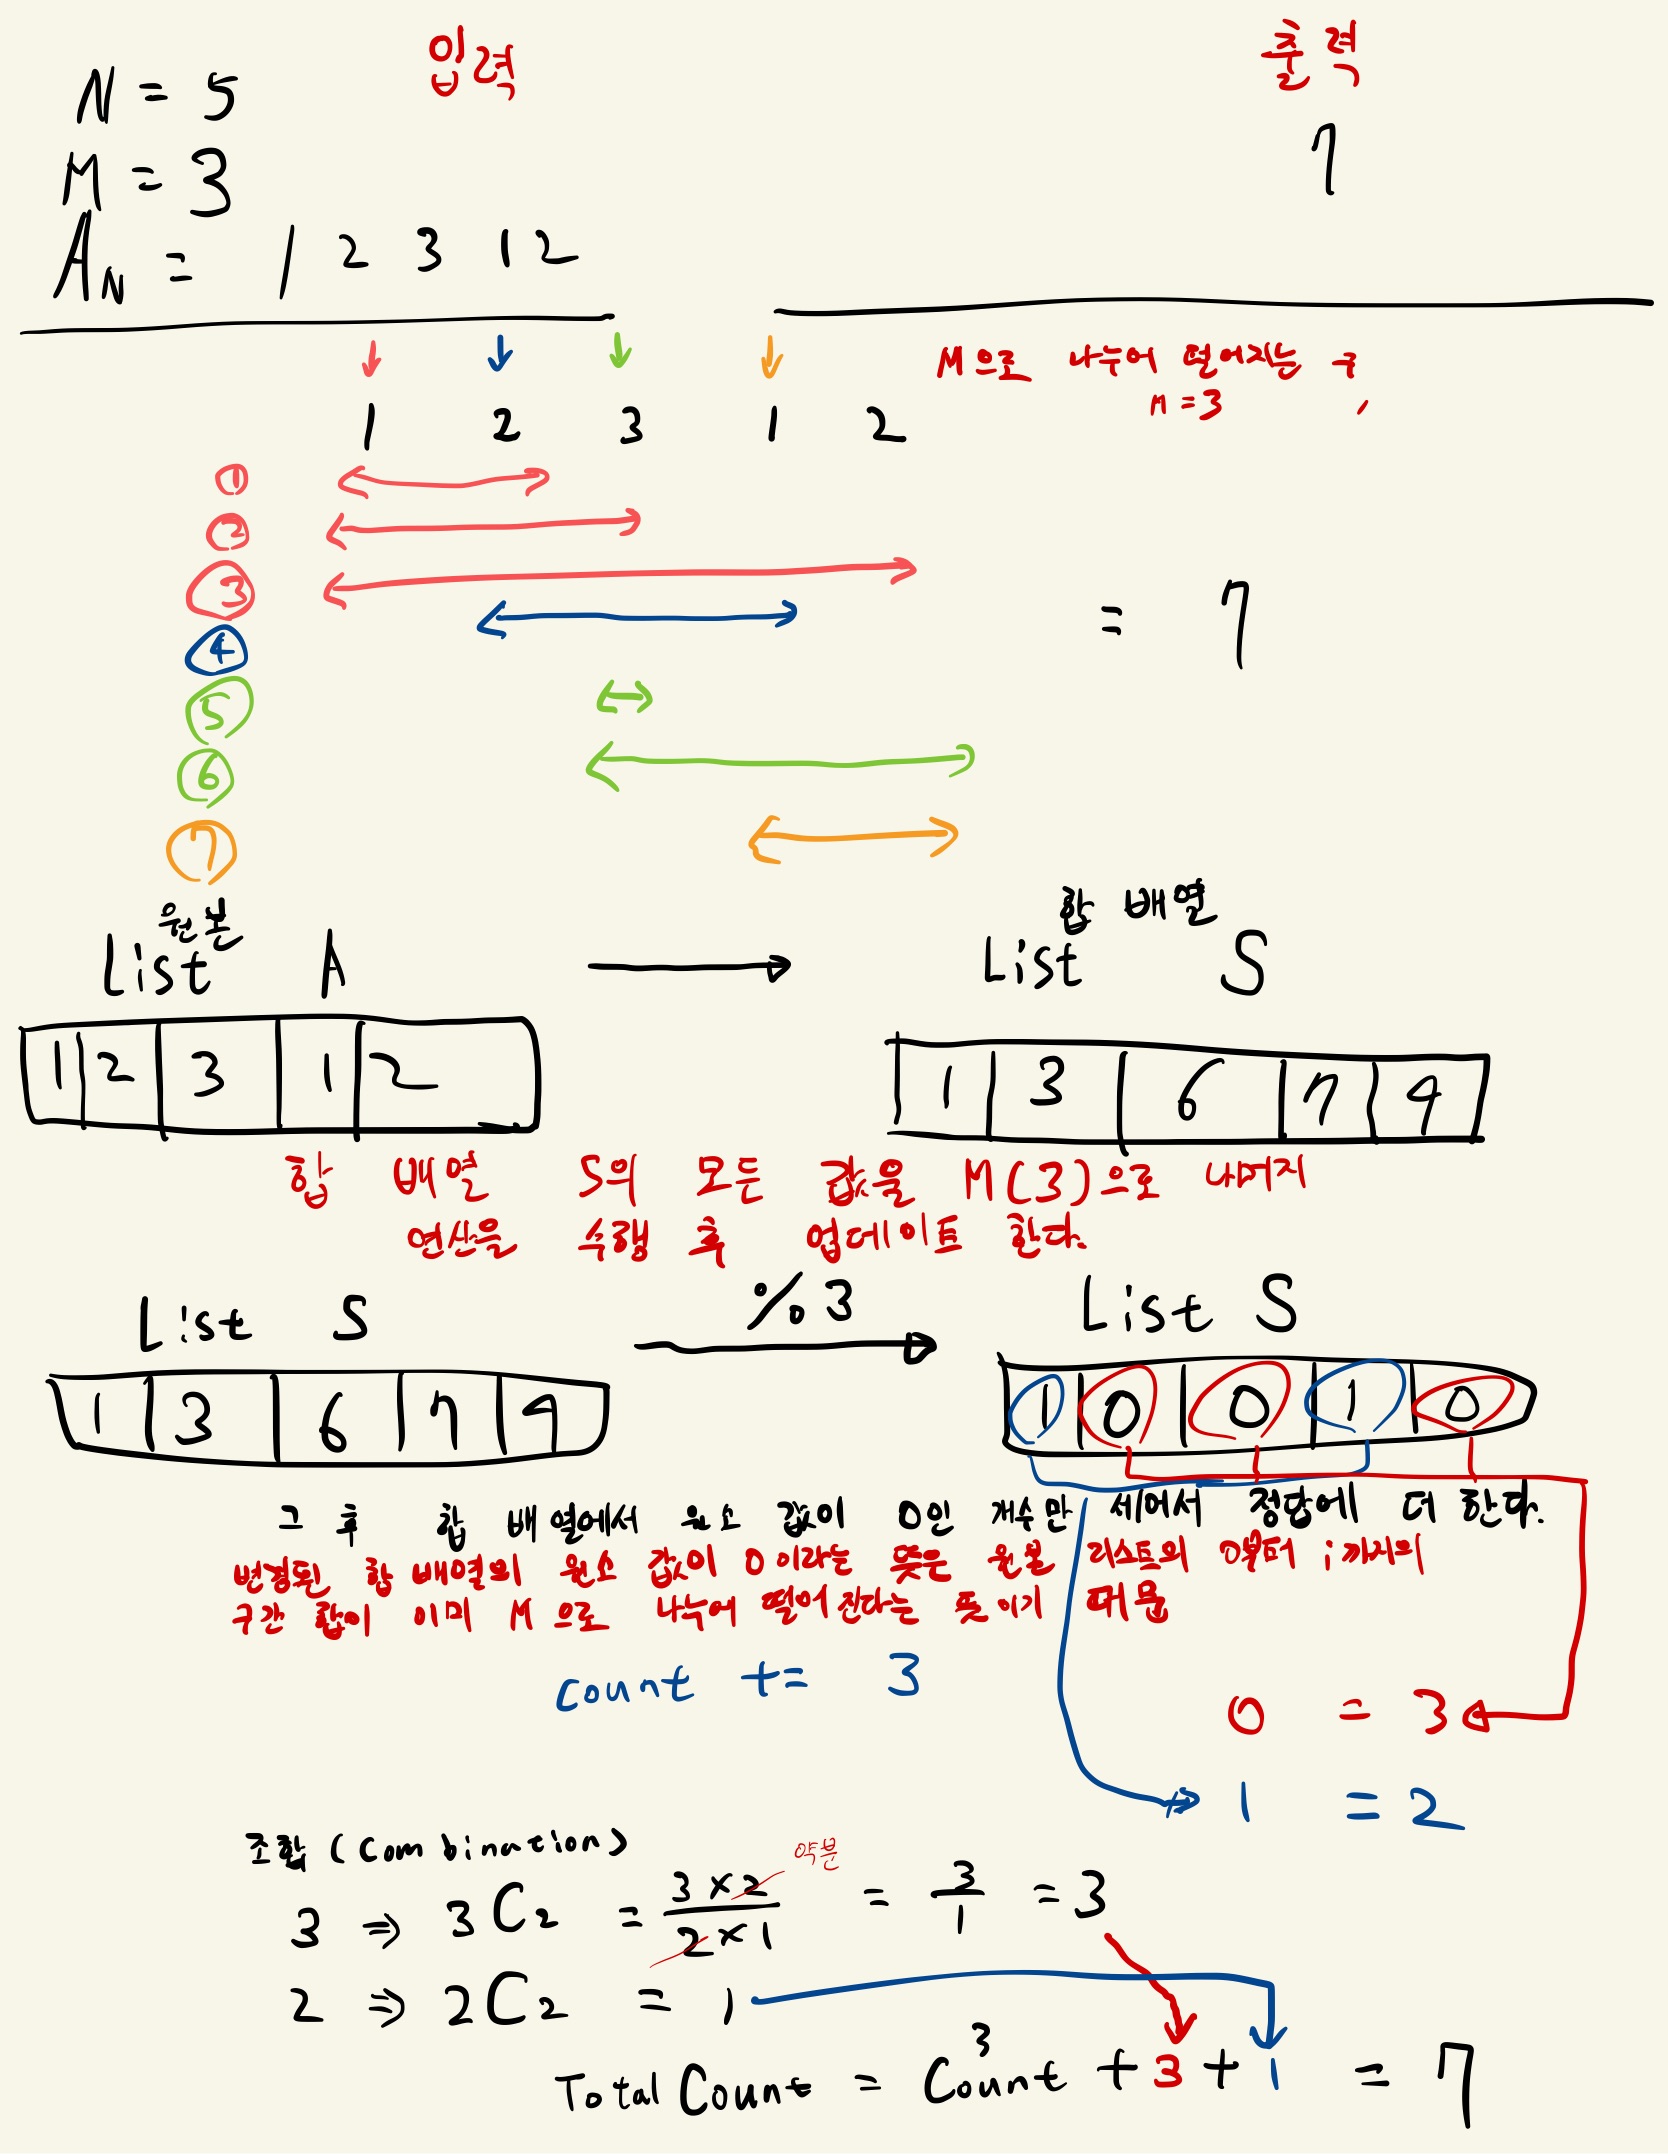 입력
출력
N = 5
M = 3
7
A_N = 1 2 3 1 2
M으로 나누어 떨어지는 수,
M = 3
1 2 3 1 2
①
②
③
④
= 7
⑤
⑥
⑦
원본
List A
합 배열
List S
1 2 3 1 2
1 3 6 7 9
합 배열 S의 모든 값을 M(3)으로 나머지
연산을 수행 후 업데이트 한다.
List S
% 3
List S
1 3 6 7 9
1 0 0 1 0
그 후 합 배열에서 원소 값이 0인 개수만 세어서 정답에 더한다.
변경된 합 배열의 원소 값이 0이라는 뜻은 원본 리스트의 0부터 i까지의
구간 합이 이미 M으로 나누어 떨어진다는 뜻이기 때문
count += 3
0 = 3
1 = 2
조합 (Combination)
약분
3 ⇒ 3C2 = 3×2 / 2×1 = 3/1 = 3
2 ⇒ 2C2 = 1
3
Total Count = Count + 3 + 1 = 7